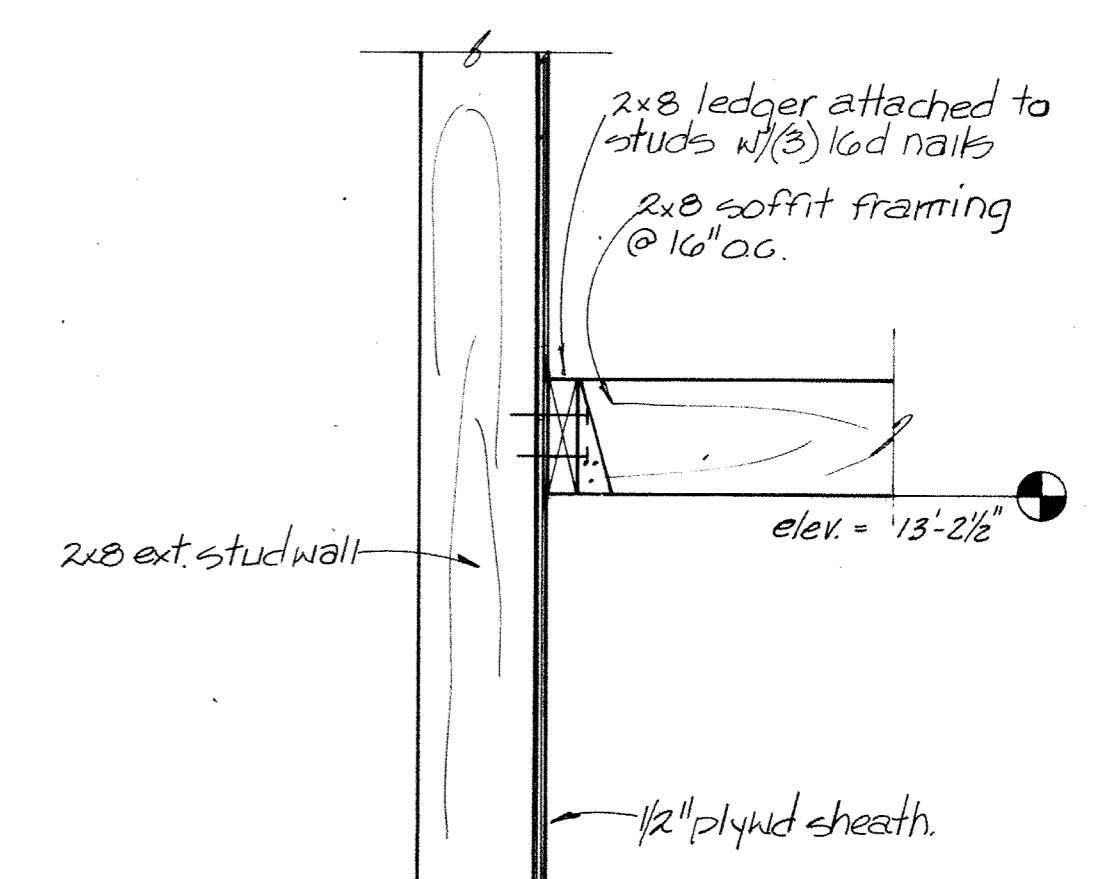 2x8 ledger attached to
studs w/(3) 16d nails
2x8 soffit framing
@ 16" O.C.
elev. = 13'-2½"
2x8 ext. stud wall
1/2" plywd sheath.